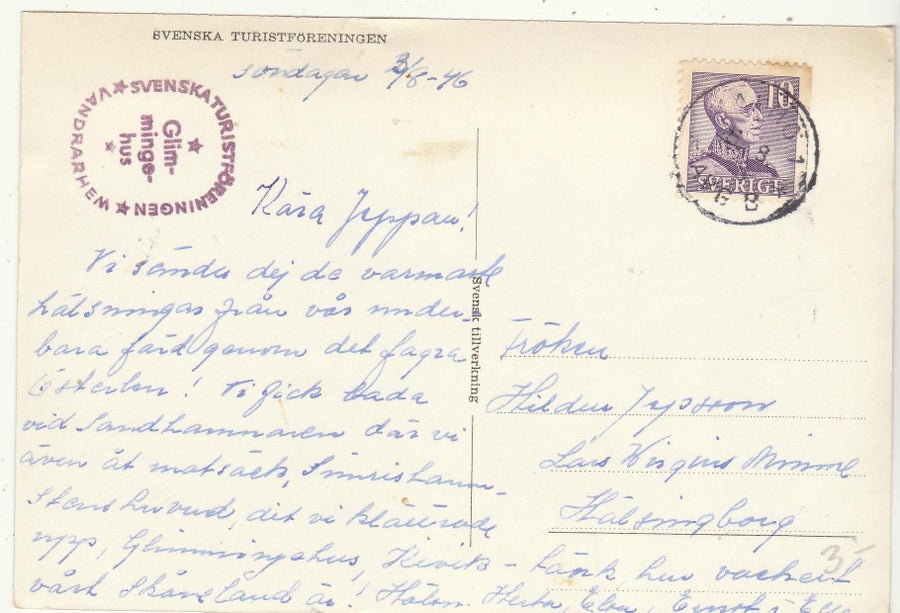 SVENSKA TURISTFÖRENINGEN
söndagen 3/8-46
★ SVENSKA TURISTFÖRENINGEN ★ VANDRARHEM
Glim-
minge-
hus
10
SVERIGE
Kära Jyppan!
Vi sända dej de varmaste
hälsningar från vår under-
bara färd genom det fagra
Österlen! Vi fick bada
vid Sandhammaren där vi
även åt matsäck, Simrishamn,
Stenshuvud, dit vi klättrade
upp, Glimmingehus, Kivik - tänk hur vackert
vårt Skåneland är! Hälsn. Herta, Elsa, Ernst
Svensk tillverkning
Fröken
Hildur
Lars Minne
Hälsingborg
3